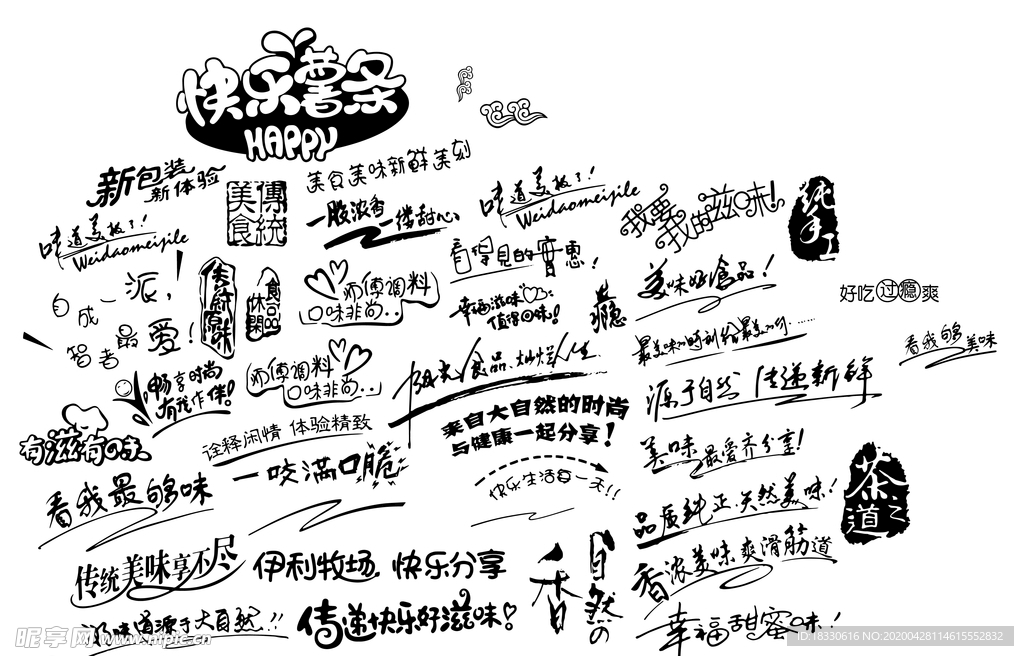 快乐薯条
HAPPY
新包装
新体验
美食美味新鲜美刻
传统
美食
一股浓香
一缕甜心
味道美极了!
Weidaomeijile
味道美极了!
Weidaomeijile
我要我的滋味!
纯手工
自成一派,
智者最爱!
传统原味
食品
休闲
师傅调料
口味非尚..
看得见的实惠!
幸福滋味
值得回味!
美味好食品!
好吃过瘾爽
畅享时尚
有我作伴!
师傅调料
口味非尚..
阳光食品、灿烂人生
看我够美味
源于自然 传递新鲜
有滋有味
诠释闲情 体验精致
来自大自然的时尚
与健康一起分享!
美味最爱齐分享!
看我最够味
一咬满口脆
快乐生活每一天!!
品质纯正.天然美味!
茶之道
传统美味享不尽
伊利牧场.快乐分享
香
自然の
香浓美味爽滑筋道
味道源于大自然.!!
传递快乐好滋味!
幸福甜蜜味!
昵享网 www.nipic.cn
ID:18330616 NO:20200428114615552832